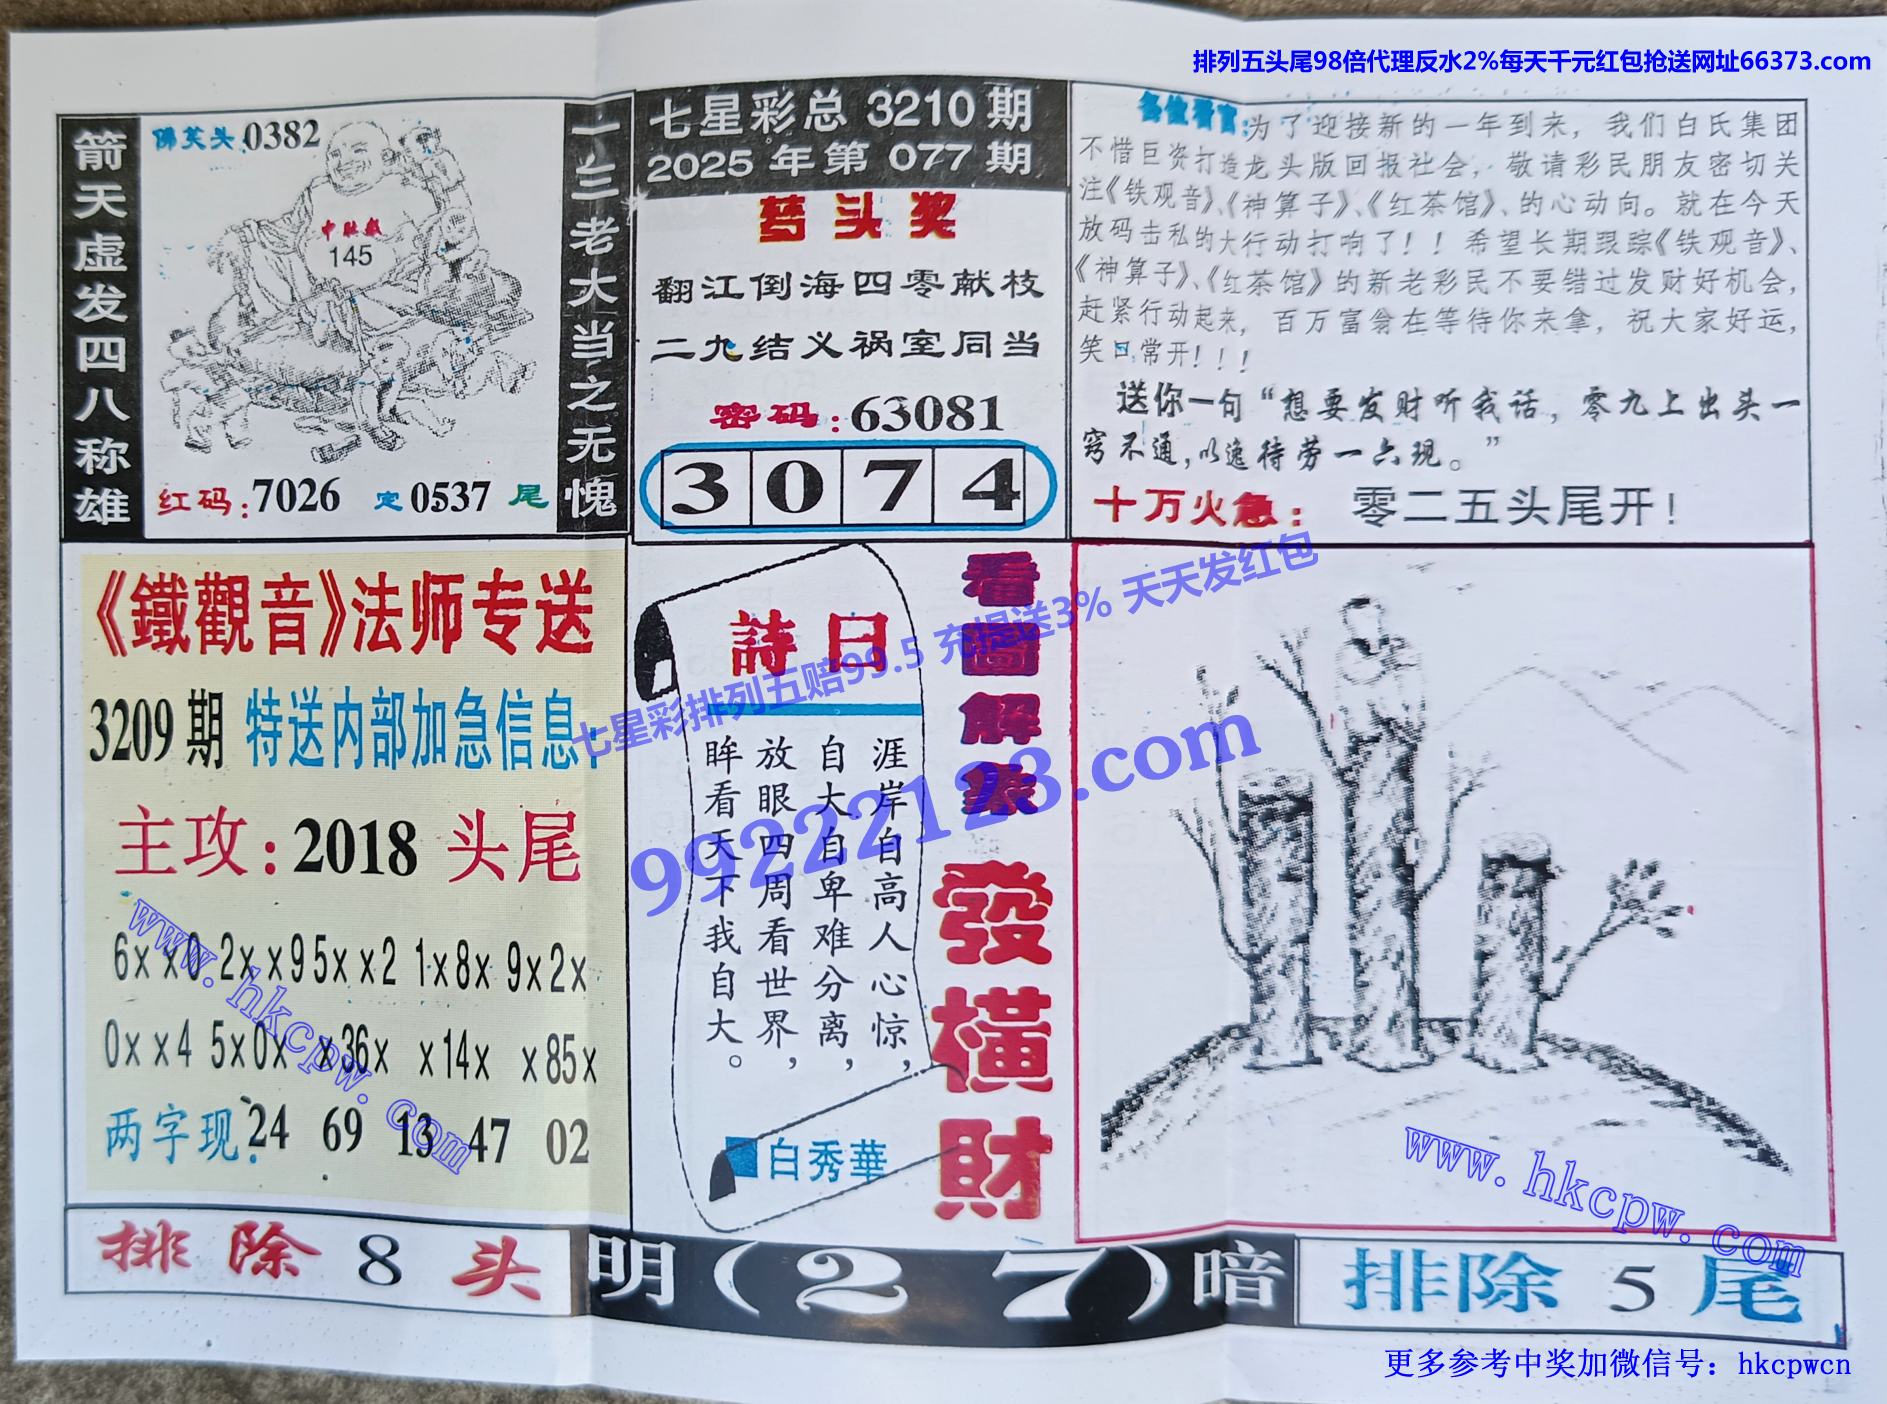 排列五头尾98倍代理反水2%每天千元红包抢送网址66373.com
箭天虚发四八称雄
佛笑头:0382
中肚数
145
红码:7026 定0537尾
一三老大当之无愧
七星彩总 3210 期
2025 年第 077 期
梦头奖
翻江倒海四零献枝
二九结义祸室同当
密码:63081
3 0 7 4
各位看官:为了迎接新的一年到来，我们白氏集团
不惜巨资打造龙头版回报社会，敬请彩民朋友密切关
注《铁观音》、《神算子》、《红茶馆》、的心动向。就在今天
放码击私的大行动打响了！！希望长期跟踪《铁观音》、
《神算子》、《红茶馆》的新老彩民不要错过发财好机会，
赶紧行动起来，百万富翁在等待你来拿，祝大家好运，
笑口常开！！！
送你一句“想要发财听我话，零九上出头一
窍不通，以逸待劳一六现。”
十万火急：零二五头尾开！
《鐵觀音》法师专送
3209 期 特送内部加急信息:
主攻:2018 头尾
6××0 2××9 5××2 1×8× 9×2×
0××4 5×0× ×36× ×14× ×85×
两字现:24 69 13 47 02
詩曰
涯岸自高人心惊，
自大自卑难分离，
放眼四周看世界，
眸看天下我自大。
白秀華
看圖解象
發橫財
七星彩排列五赔99.5 充提送3% 天天发红包
99222123.com
www.hkcpw.com
www.hkcpw.com
排除 8 头
明(27)暗
排除 5 尾
更多参考中奖加微信号：hkcpwcn